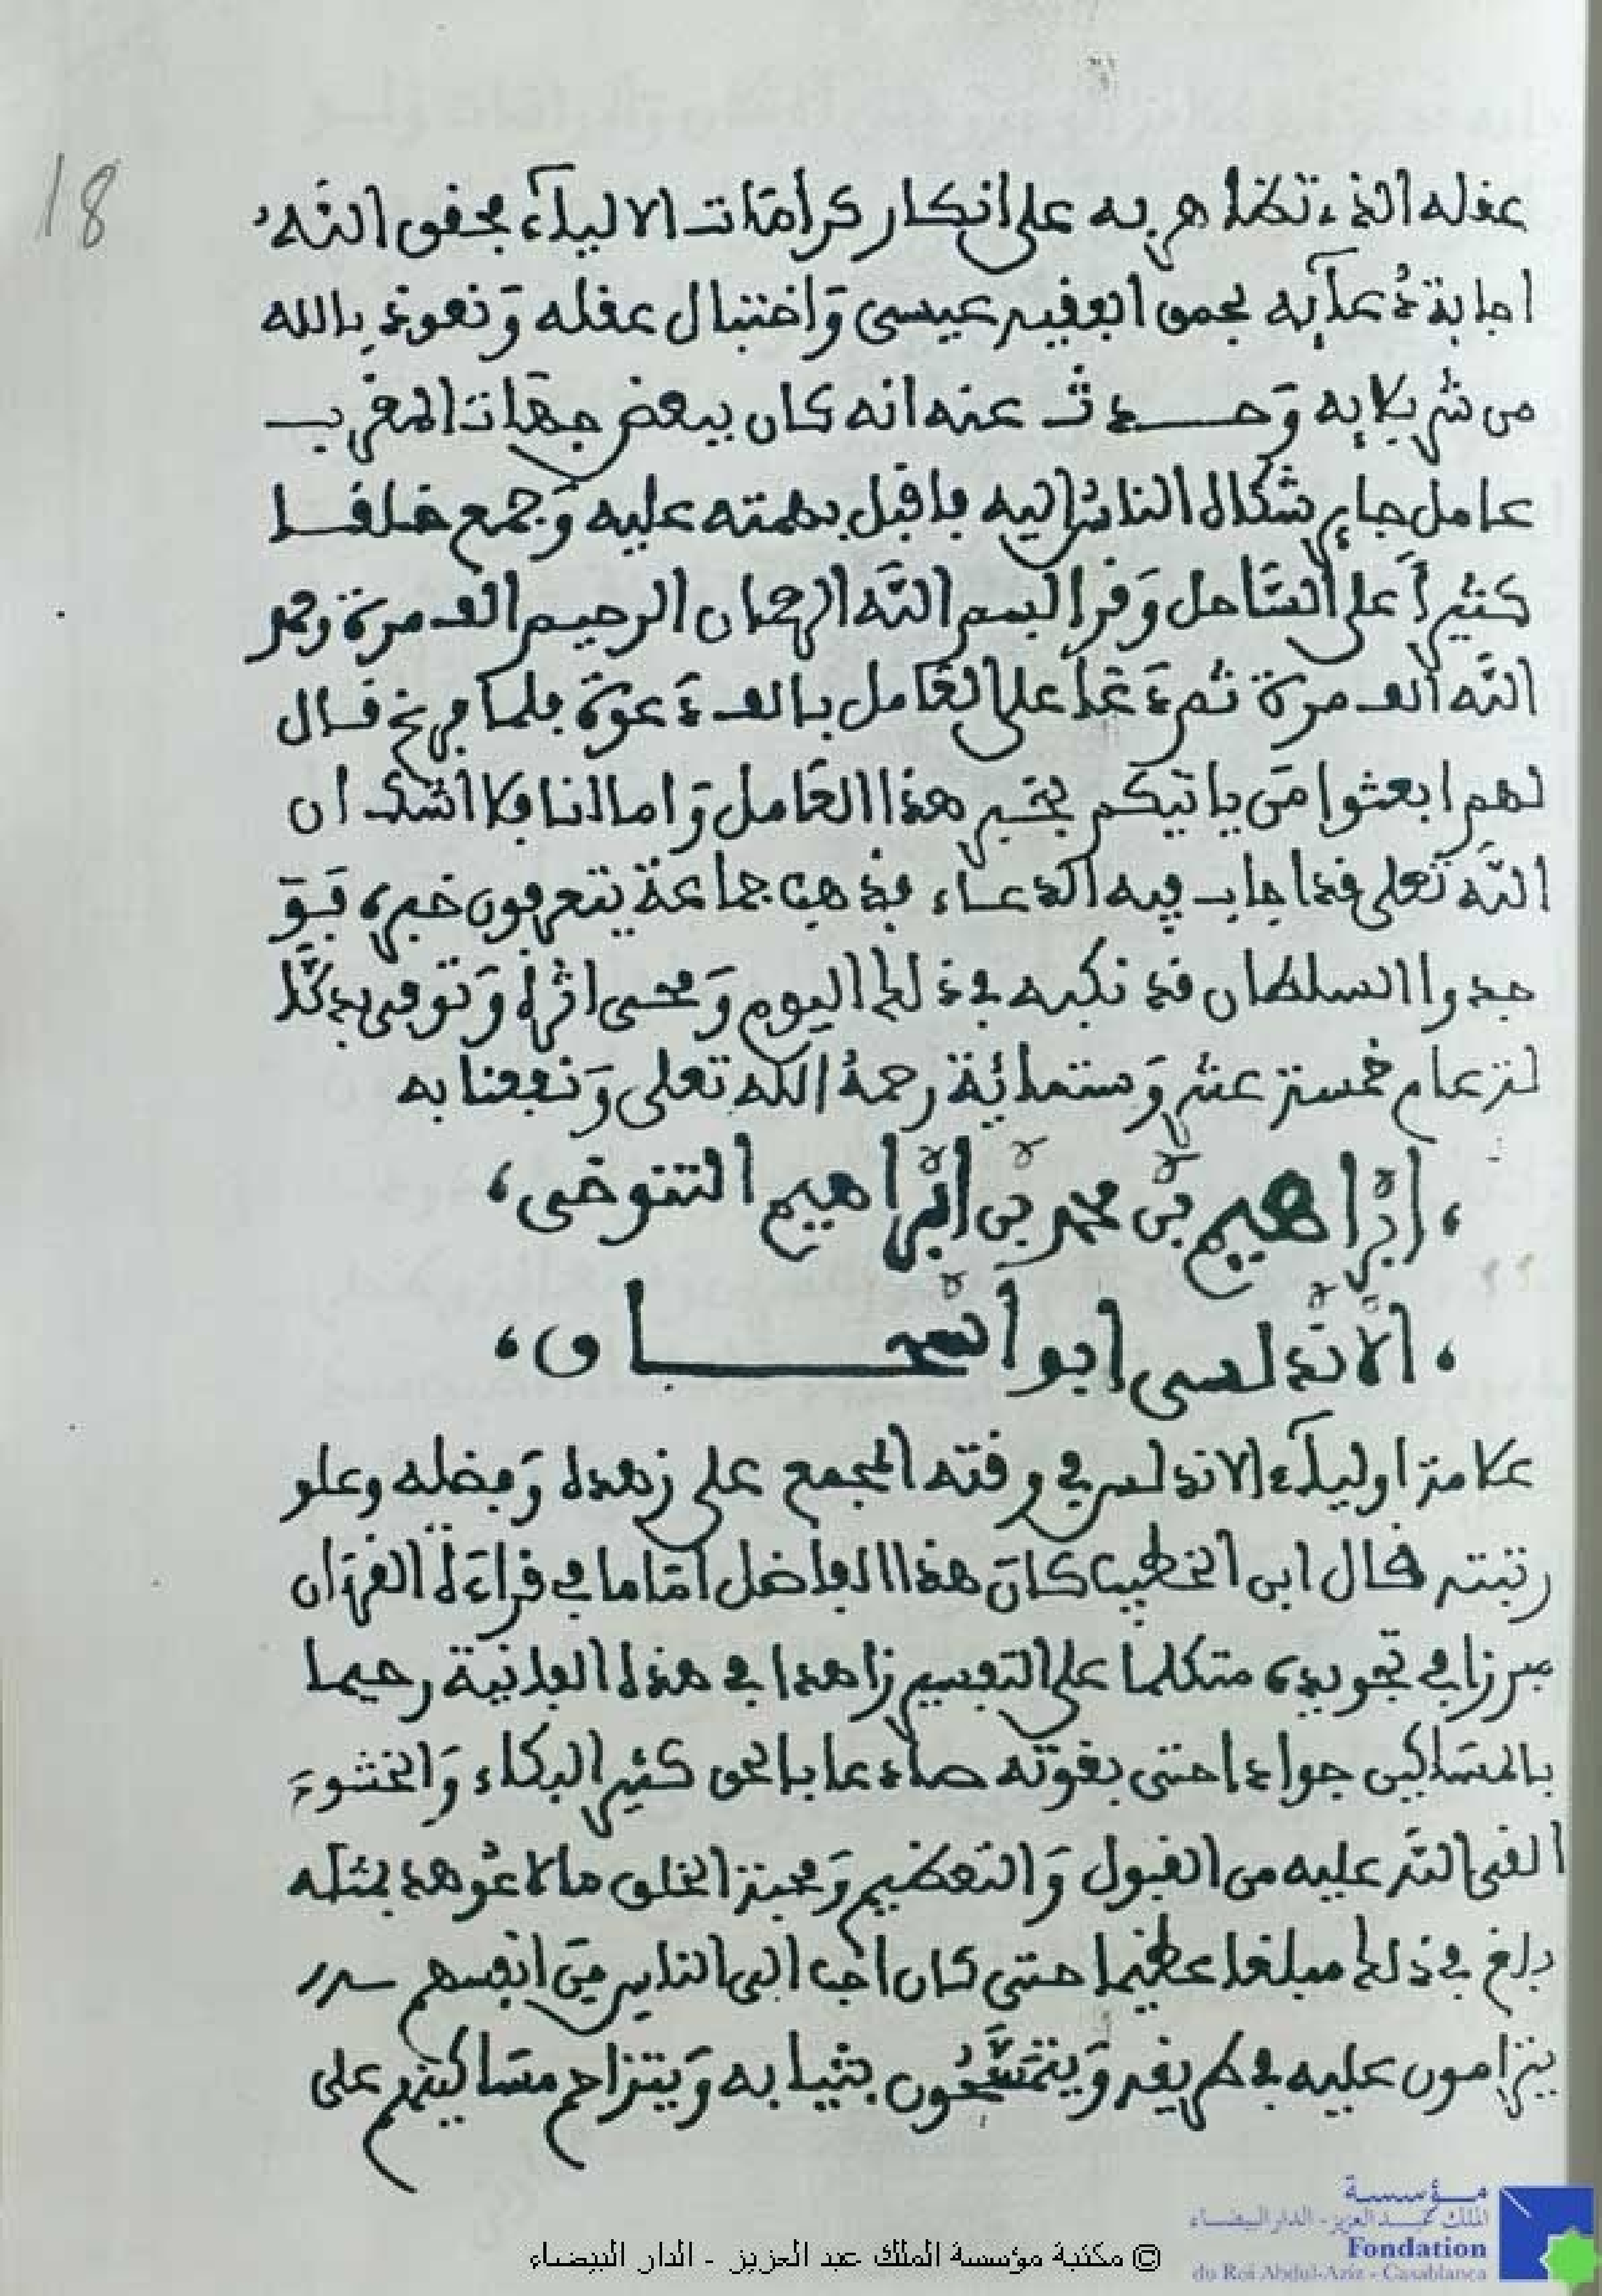 18
عقله الذي تظاهر به على انكار كرامات الاولياء بحقق الله
اجابة دعائه بحمق الفقير عيسى واختبال عقله ونعوذ بالله
من شر بلايه وحدث عنه انه كان ببعض جهات المغرب
عامل جاير شكاه الناس اليه فاقبل بهمته عليه وجمع خلقا
كثيرا على الساحل وقرا البسم الله الرحمان الرحيم الف مرة وحمد
الله الف مرة ثم دعا على العامل بالف دعوة فلما فرغ قال
لهم ابعثوا من ياتيكم بخبر هذا العامل واما انا فلا اشك ان
الله تعلى قد اجاب فيه الدعاء فذهب جماعة يتعرفون خبره فو
جدوا السلطان قد نكبه في ذلك اليوم ومحى اثره وتوفى بدكا
لة عام خمسة عشر وستمائة رحمه الله تعلى ونفعنا به
، ابراهيم بن محمد بن ابراهيم التنوخى ،
، الاندلسى ابو اسحاق ،
علامة اولياء الاندلس في وقته المجمع على زهده وفضله وعلو
رتبته قال ابن الخطيب كان هذا الفاضل اماما في قراءة القرءان
مبرزا في تجويده متكلما على التفسير زاهدا في هذه الفانية رحيما
بالمساكين جوادا حتى بقوته صادعا بالحق كثير البكاء والخشوع
القى الله عليه من القبول والتعظيم ومحبة الخلق ما لا عوهد بمثله
بلغ في ذلك مبلغا عظيما حتى كان احب الى الناس من انفسهم
يتزاحمون عليه في طريقه ويتمسحون بثيابه ويتزاحم مساكينهم على
مؤسسة
الملك عبد العزيز - الدار البيضاء
Fondation
du Roi Abdul-Aziz - Casablanca
© مكتبة مؤسسة الملك عبد العزيز - الدار البيضاء